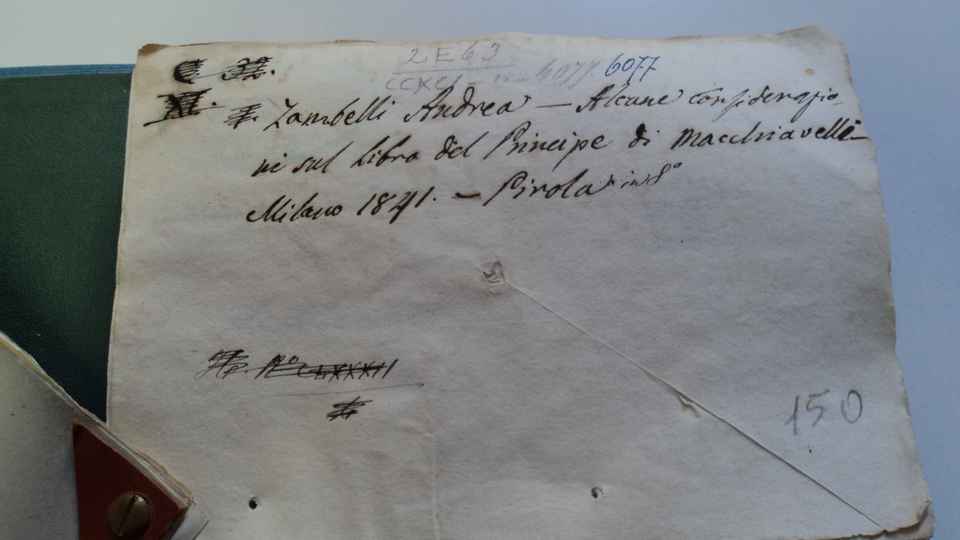 2E63
6077 6077
Zambelli Andrea — Alcune considerazio-
ni sul libro del Principe di Macchiavelli-
Milano 1841. — Pirola in 8°
N°
150